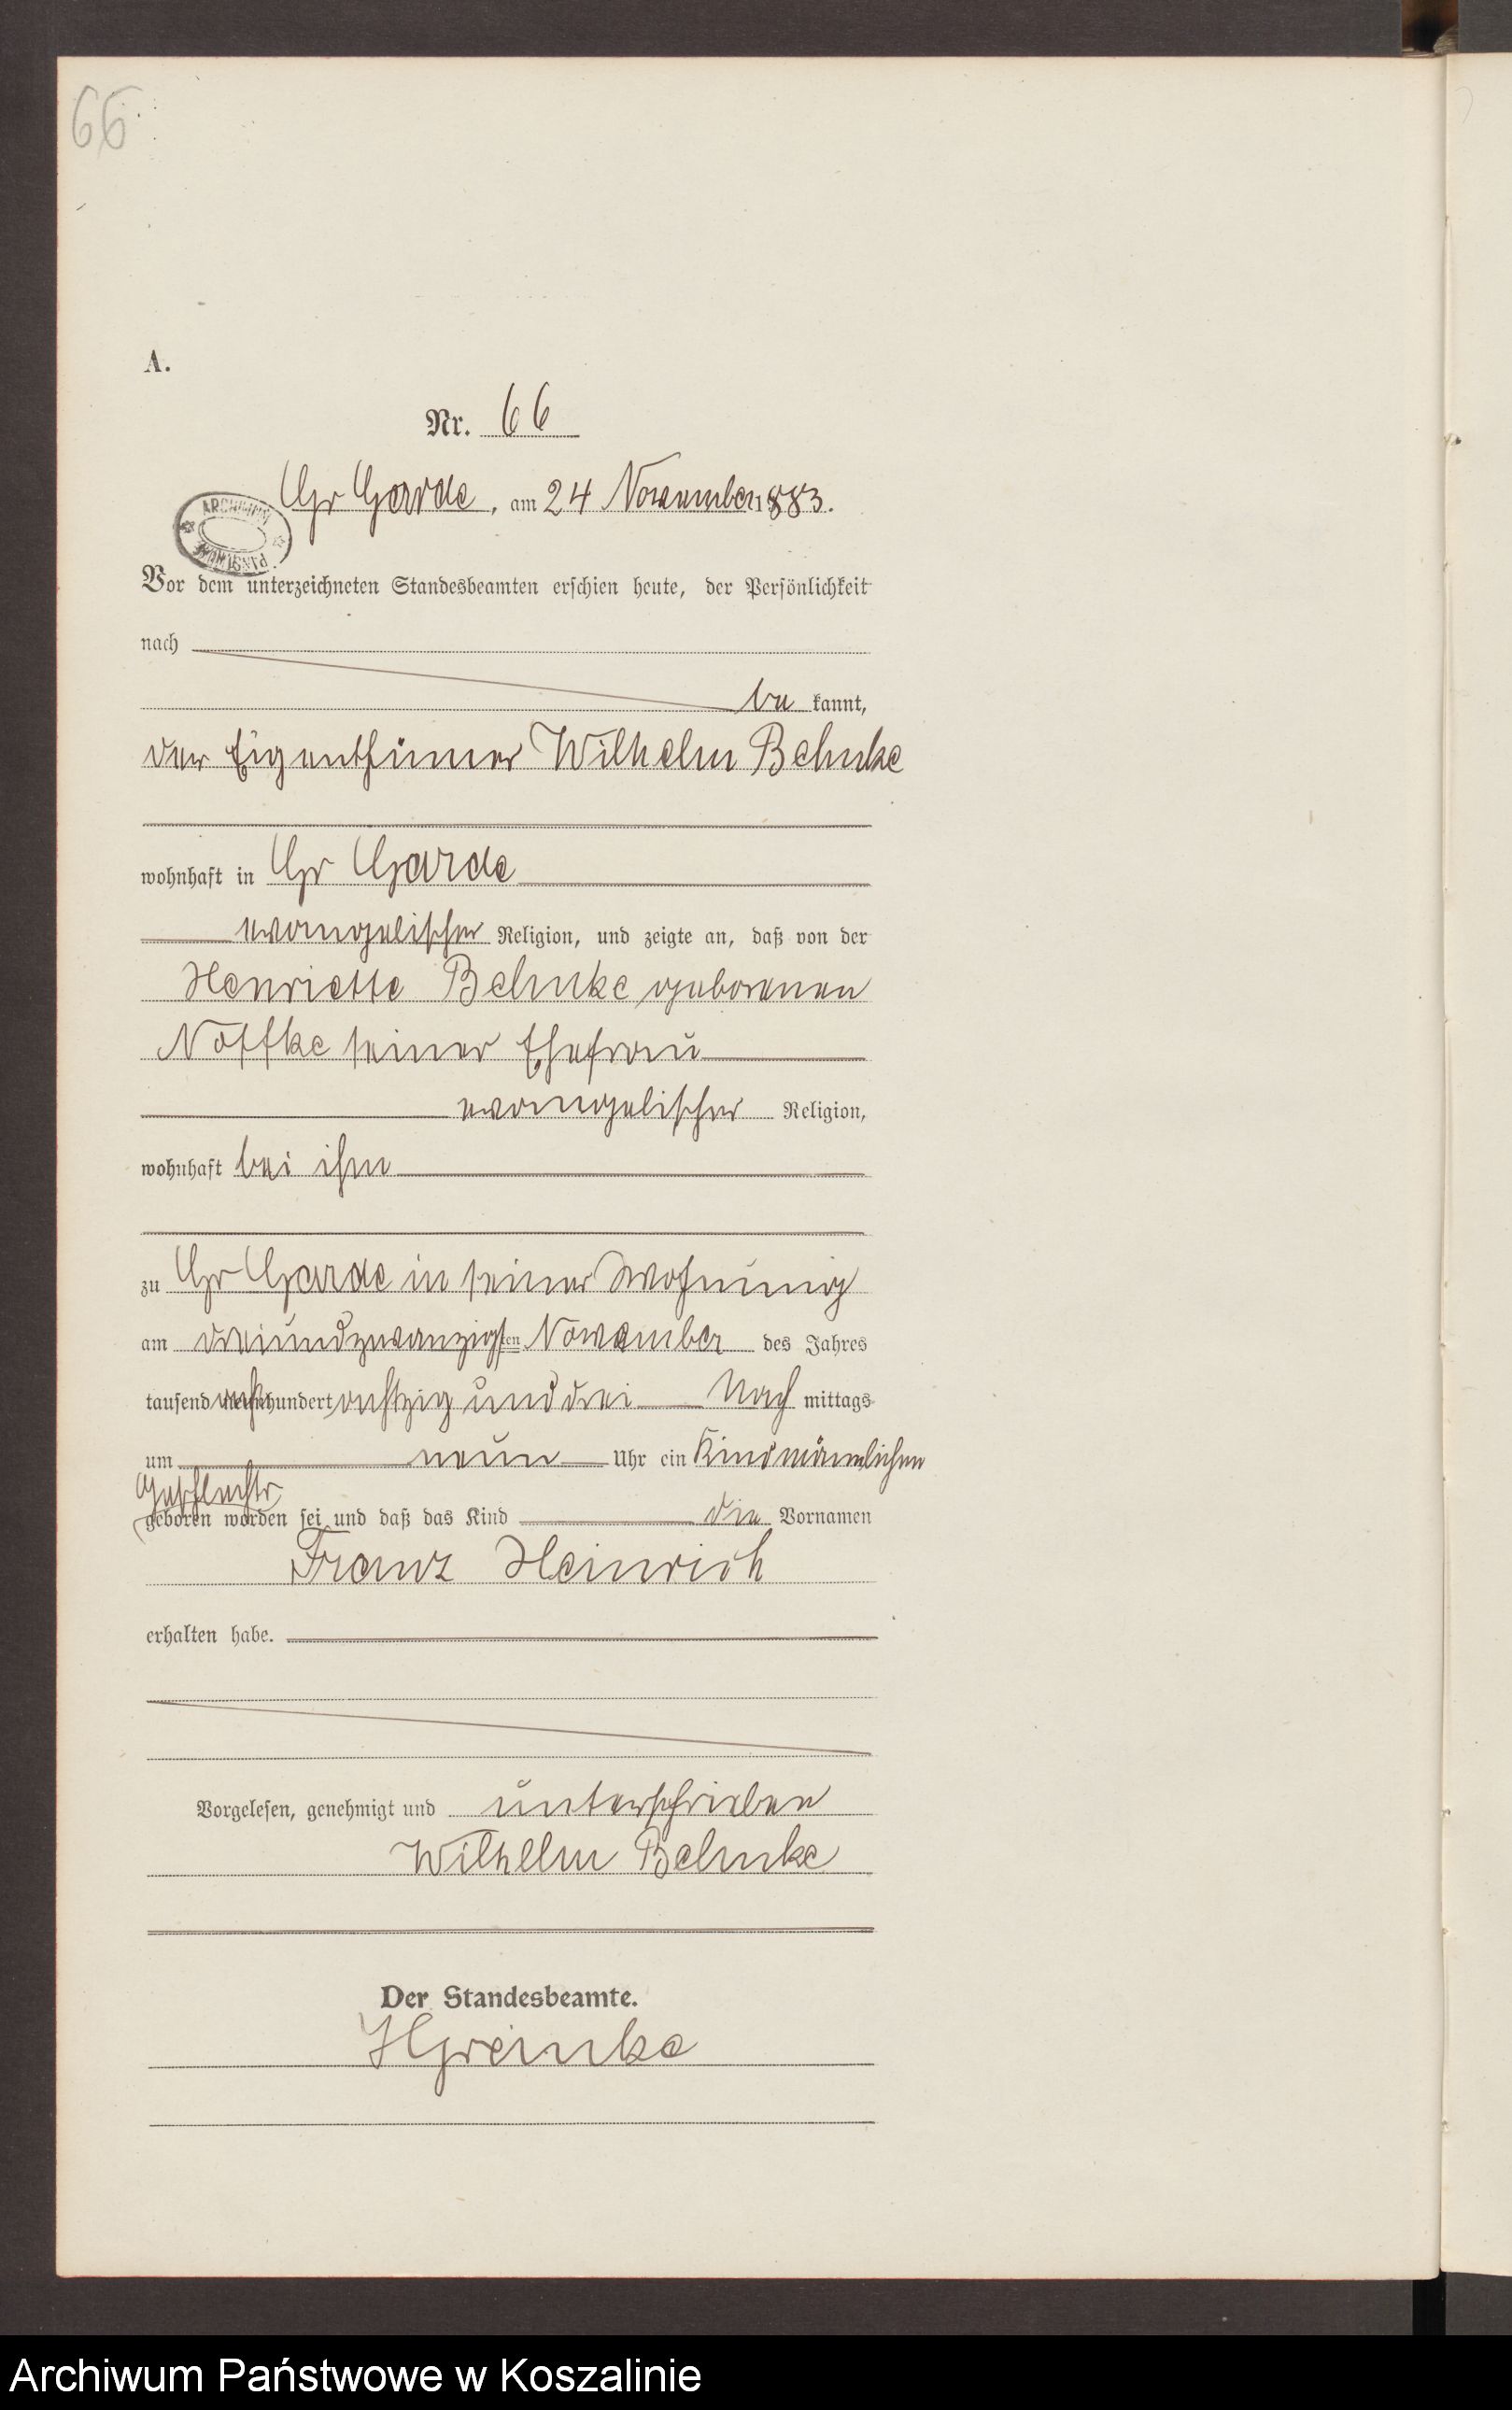 66
A.
Nr. 66
Gr Garde, am 24 November 1883.
ARCHIWUM PAŃSTWOWE
Vor dem unterzeichneten Standesbeamten erschien heute, der Persönlichkeit
nach
be kannt,
der Eigenthümer Wilhelm Behnke
wohnhaft in Gr Garde
evangelischer Religion, und zeigte an, daß von der
Henriette Behnke geborenen
Noffke seiner Ehefrau
evangelischer Religion,
wohnhaft bei ihm
zu Gr Garde in seiner Wohnung
am dreiundzwanzigsten November des Jahres
tausend acht hundert achtzig und drei Nach mittags
um neun Uhr ein Kind männlichen
Geschlechts
geboren worden sei und daß das Kind die Vornamen
Franz Heinrich
erhalten habe.
Vorgelesen, genehmigt und unterschrieben
Wilhelm Behnke
Der Standesbeamte.
HGreinke
Archiwum Państwowe w Koszalinie